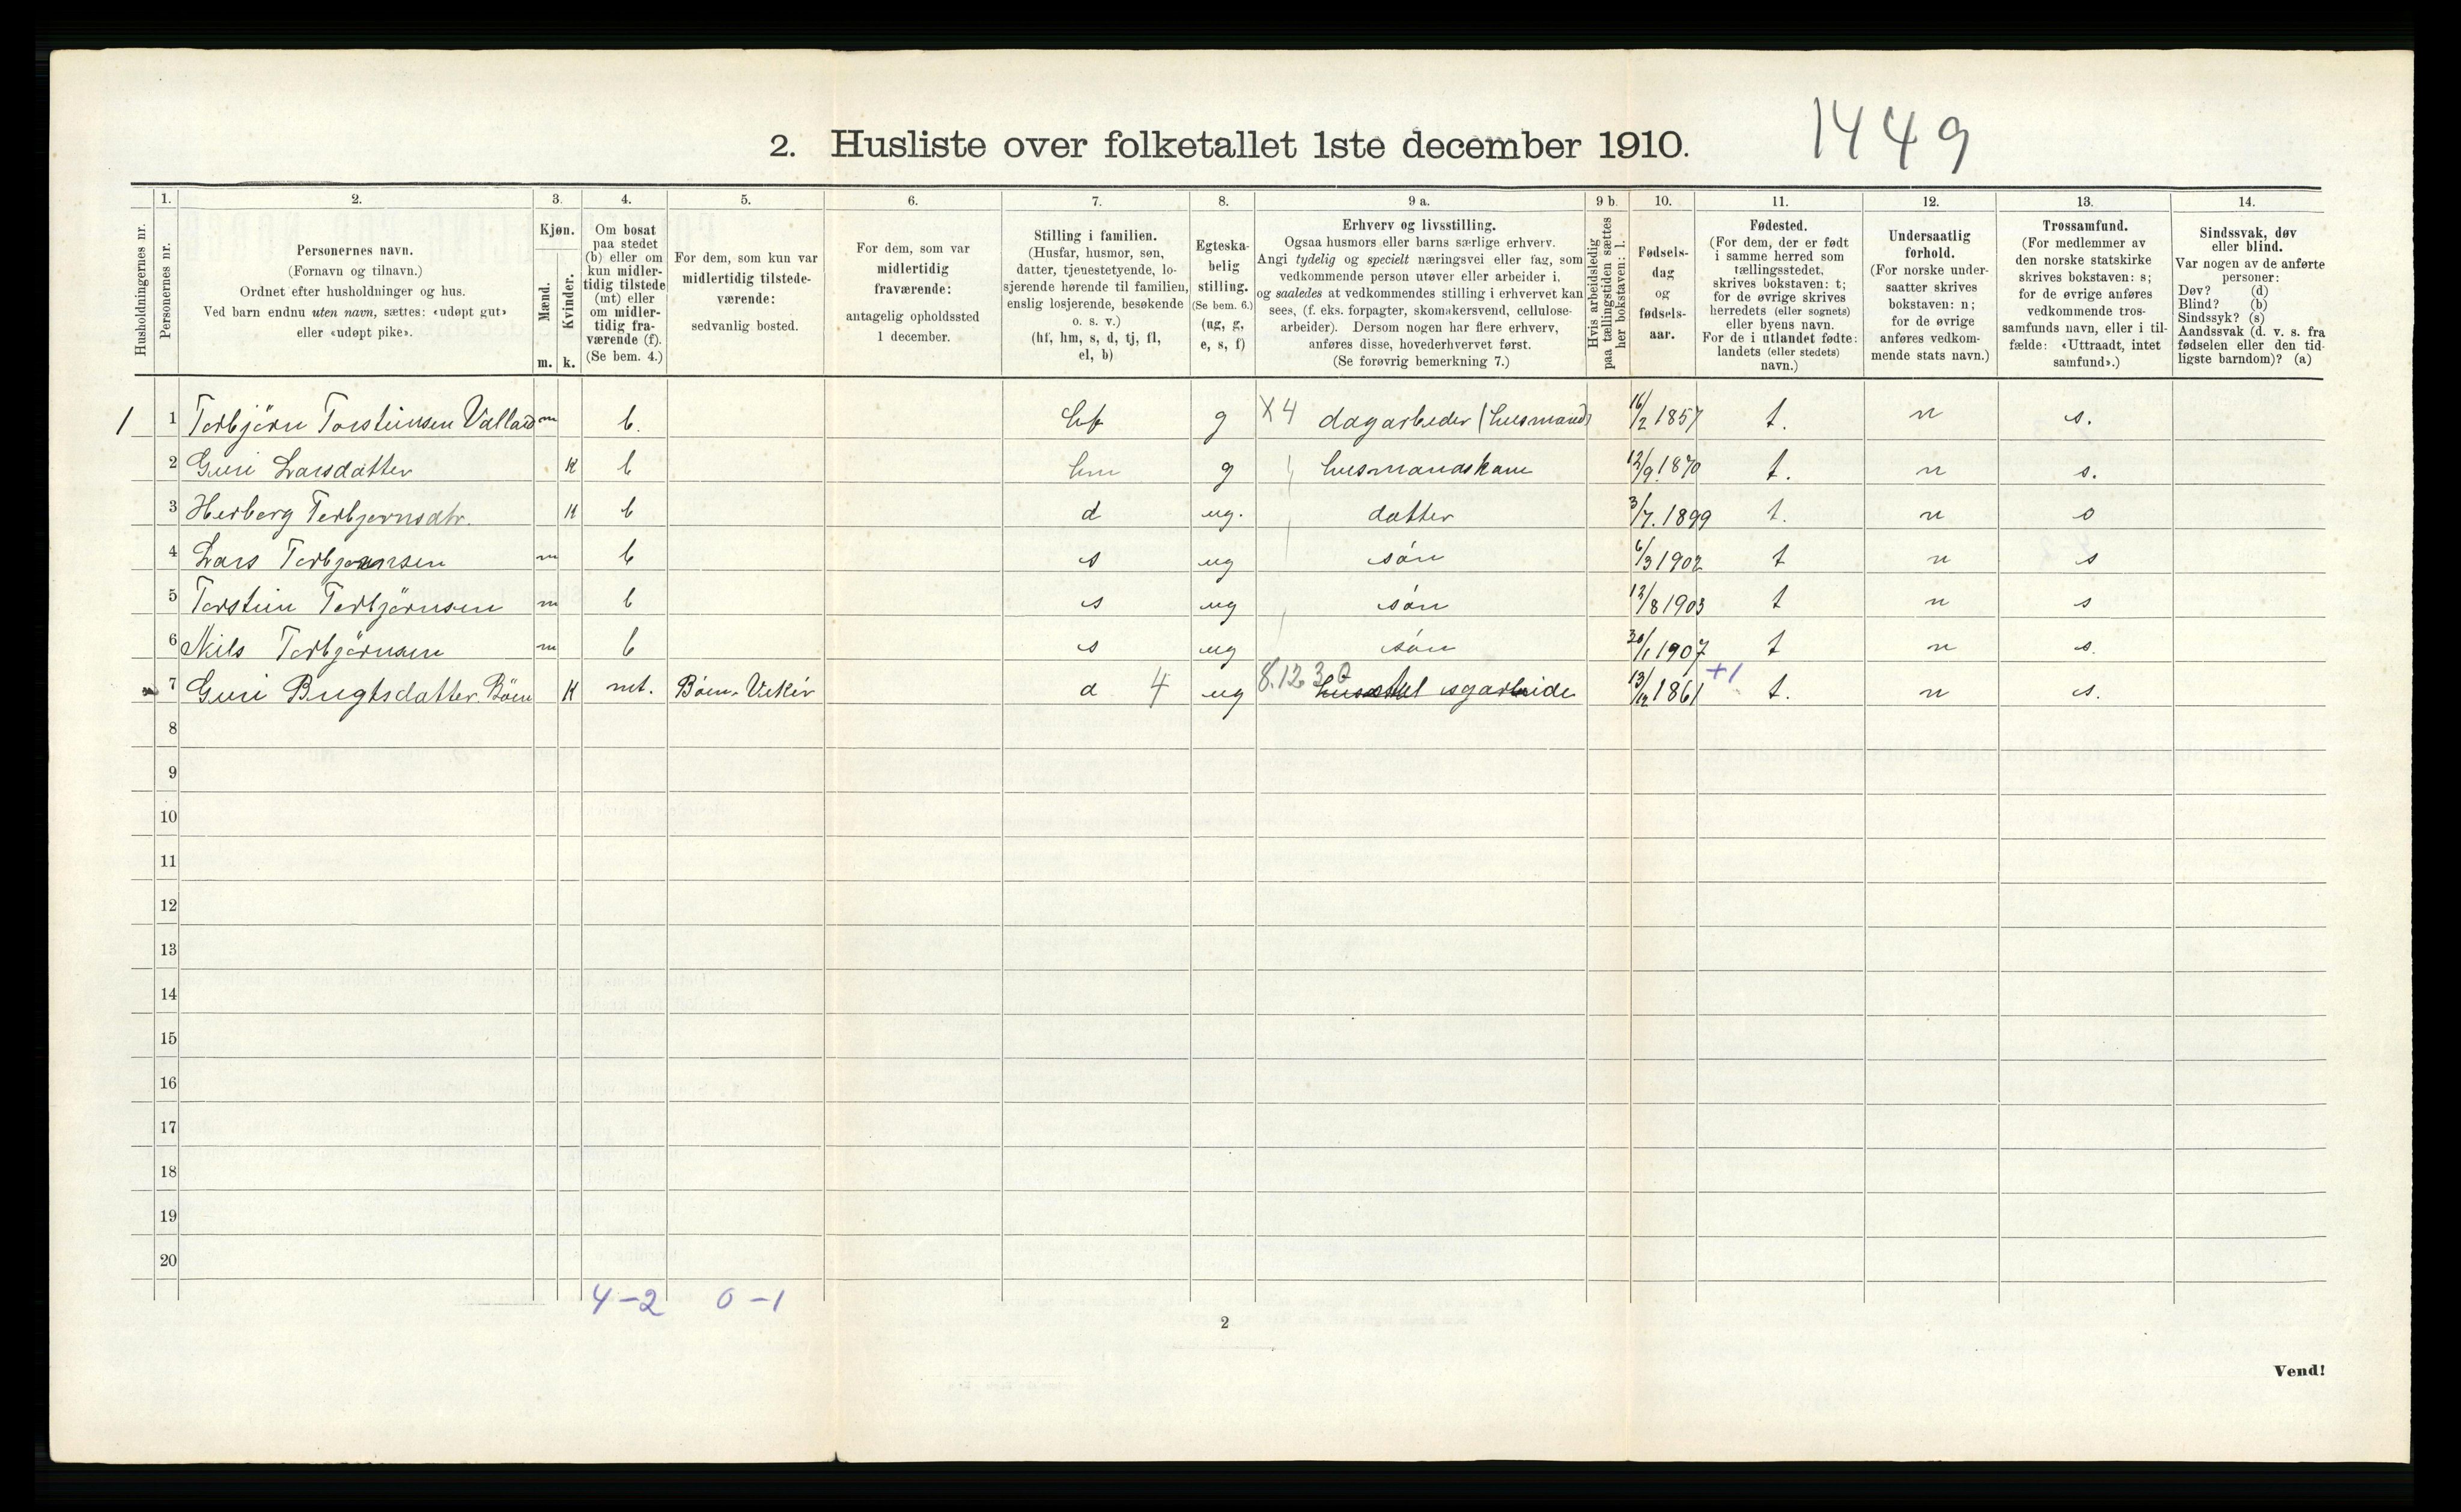 1449
2. Husliste over folketallet 1ste december 1910.
Husholdningernes nr.
1. Personernes nr.
2. Personernes navn.
(Fornavn og tilnavn.)
Ordnet efter husholdninger og hus.
Ved barn endnu uten navn, sættes: «udøpt gut»
eller «udøpt pike».
3. Kjøn.
Mænd. m.
Kvinder. k.
4. Om bosat
paa stedet
(b) eller om
kun midler-
tidig tilstede
(mt) eller
om midler-
tidig fra-
værende (f).
(Se bem. 4.)
5. For dem, som kun var
midlertidig tilstede-
værende:
sedvanlig bosted.
6. For dem, som var
midlertidig
fraværende:
antagelig opholdssted
1 december.
7. Stilling i familien.
(Husfar, husmor, søn,
datter, tjenestetyende, lo-
sjerende hørende til familien,
enslig losjerende, besøkende
o. s. v.)
(hf, hm, s, d, tj, fl,
el, b)
8. Egteska-
belig
stilling.
(Se bem. 6.)
(ug, g,
e, s, f)
9 a. Erhverv og livsstilling.
Ogsaa husmors eller barns særlige erhverv.
Angi tydelig og specielt næringsvei eller fag, som
vedkommende person utøver eller arbeider i,
og saaledes at vedkommendes stilling i erhvervet kan
sees, (f. eks. forpagter, skomakersvend, cellulose-
arbeider). Dersom nogen har flere erhverv,
anføres disse, hovederhvervet først.
(Se forøvrig bemerkning 7.)
9 b. Hvis arbeidsledig
paa tællingstiden sættes
her bokstaven: l.
10. Fødsels-
dag
og
fødsels-
aar.
11. Fødested.
(For dem, der er født
i samme herred som
tællingsstedet,
skrives bokstaven: t;
for de øvrige skrives
herredets (eller sognets)
eller byens navn.
For de i utlandet fødte:
landets (eller stedets)
navn.)
12. Undersaatlig
forhold.
(For norske under-
saatter skrives
bokstaven: n;
for de øvrige
anføres vedkom-
mende stats navn.)
13. Trossamfund.
(For medlemmer av
den norske statskirke
skrives bokstaven: s;
for de øvrige anføres
vedkommende tros-
samfunds navn, eller i til-
fælde: «Uttraadt, intet
samfund».)
14. Sindssvak, døv
eller blind.
Var nogen av de anførte
personer:
Døv? (d)
Blind? (b)
Sindssyk? (s)
Aandssvak (d. v. s. fra
fødselen eller den tid-
ligste barndom)? (a)
1 1 Torbjörn Torsteinsen m b. hf g X4 dagarbeider (husmand) 16/2 1857 t. n s.
2 Guri Larsdatter K b hm g husmandskone 12/9. 1870 t. n s.
3 Herborg Torbjornsdtr. K b d ug. datter 3/7. 1899 t. n s
4 Lars Torbjørnsen m b s ug sön 6/3 1902 t n s
5 Torstein Torbjörnsen m b s ug sön 12/8 1903 t n s
6 Nils Torbjörnsen m b s ug sön 30/1 1907 t n s.
7 Guri Bugtsdatter Böen K mt. Böen d 4 ug 8.12.30 13/12 1861 +1 t. n s.
8
9
10
11
12
13
14
15
16
17
18
19
20
4-2 0-1
2
Vend!